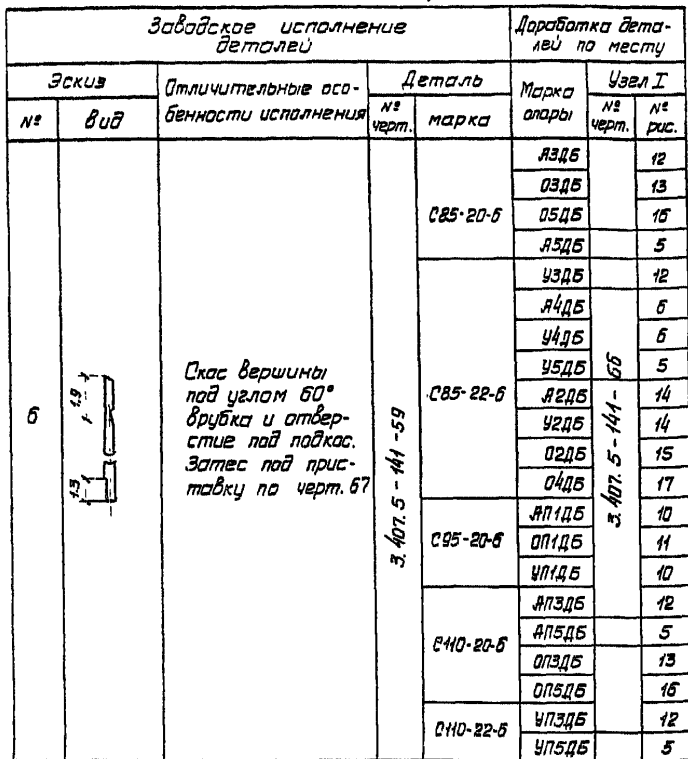 Заводское исполнение деталей
Доработка дета-
лей по месту
Эскиз
Отличительные осо-
бенности исполнения
Деталь
Марка
опоры
Узел I
№
вид
№
черт.
марка
№
черт.
№
рис.
6
1.9
1.3
Скос вершины
под углом 60°
врубка и отвер-
стие под подкос.
Затес под прис-
тавку по черт. 67
3.407.5-141-59
3.407.5-141-66
С85-20-6
А3ДБ 12
О3ДБ 13
О5ДБ 16
А5ДБ 5
С85-22-6
У3ДБ 12
А4ДБ 6
У4ДБ 6
У5ДБ 5
А2ДБ 14
У2ДБ 14
О2ДБ 15
О4ДБ 17
С95-20-6
АП1ДБ 10
ОП1ДБ 11
УП1ДБ 10
С110-20-6
АП3ДБ 12
АП5ДБ 5
ОП3ДБ 13
ОП5ДБ 16
С110-22-6
УП3ДБ 12
УП5ДБ 5